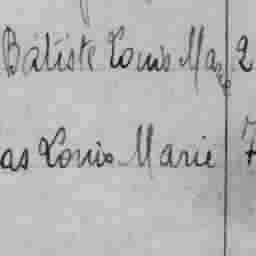 Batiste Louis Marie 2
as Louis Marie 7